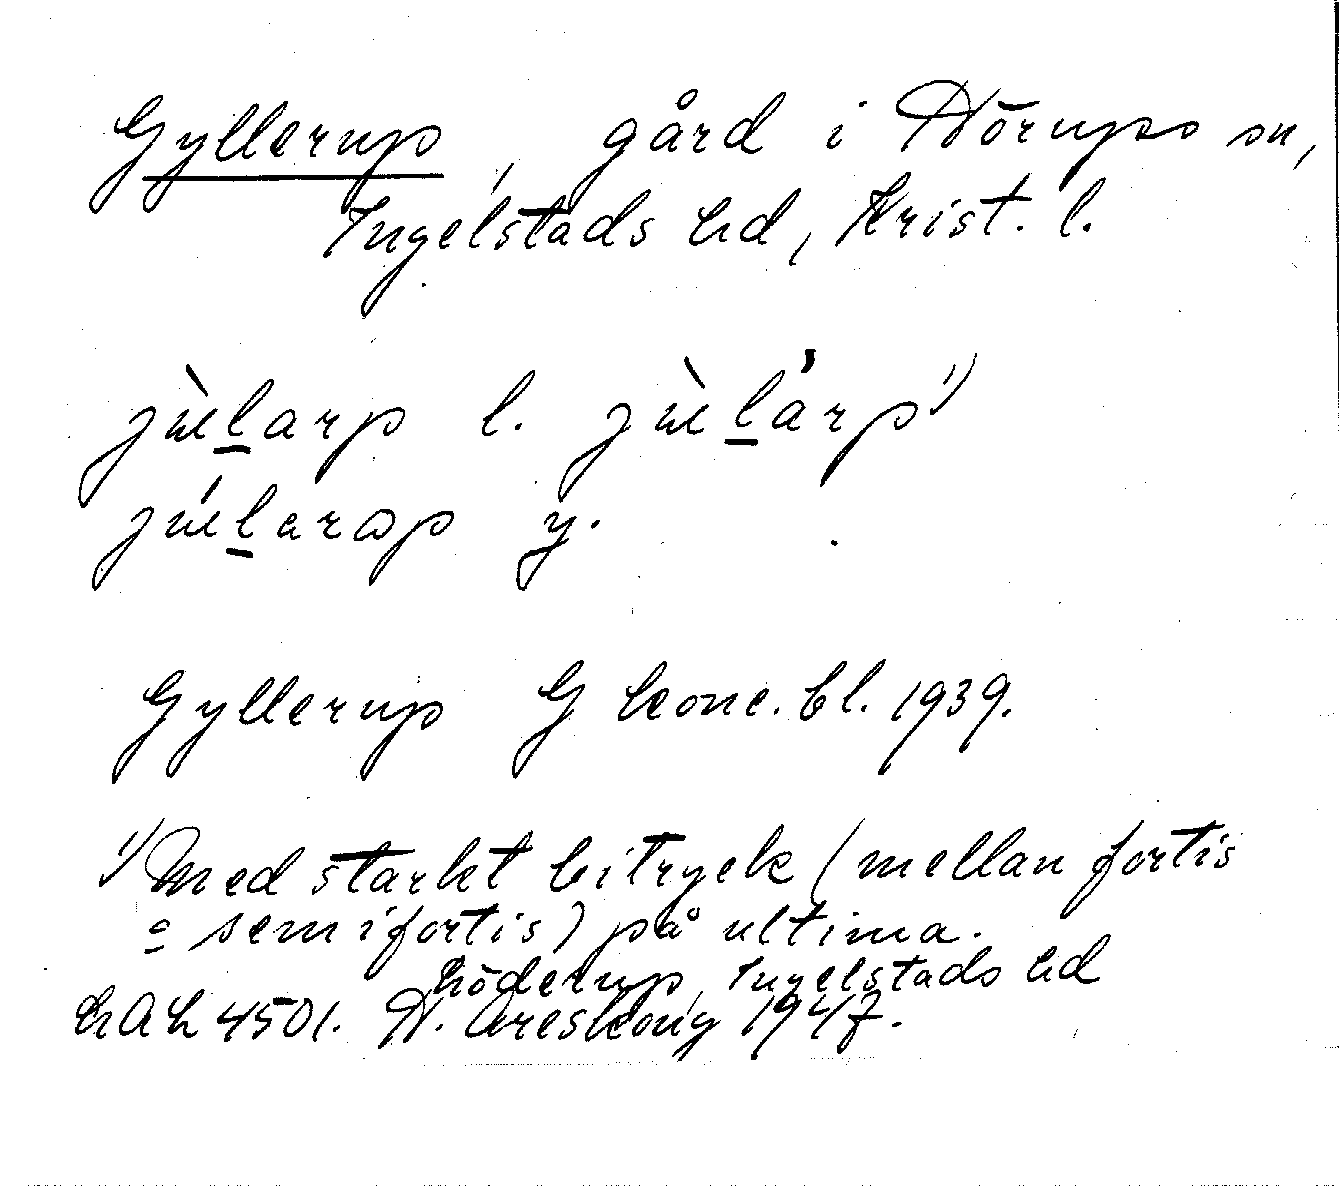 Gyllerup, gård i Hörups sn,
Ingelstads hd, Krist. l.
jùl̲arp l. jùl̲'arp 1)
júl̲arap y.
Gyllerup G konc. bl. 1939.
1) Med starkt bitryck (mellan fortis
o semifortis) på ultima.
Löderup, Ingelstads hd
LAL 4501. H. Areskoug 1947.